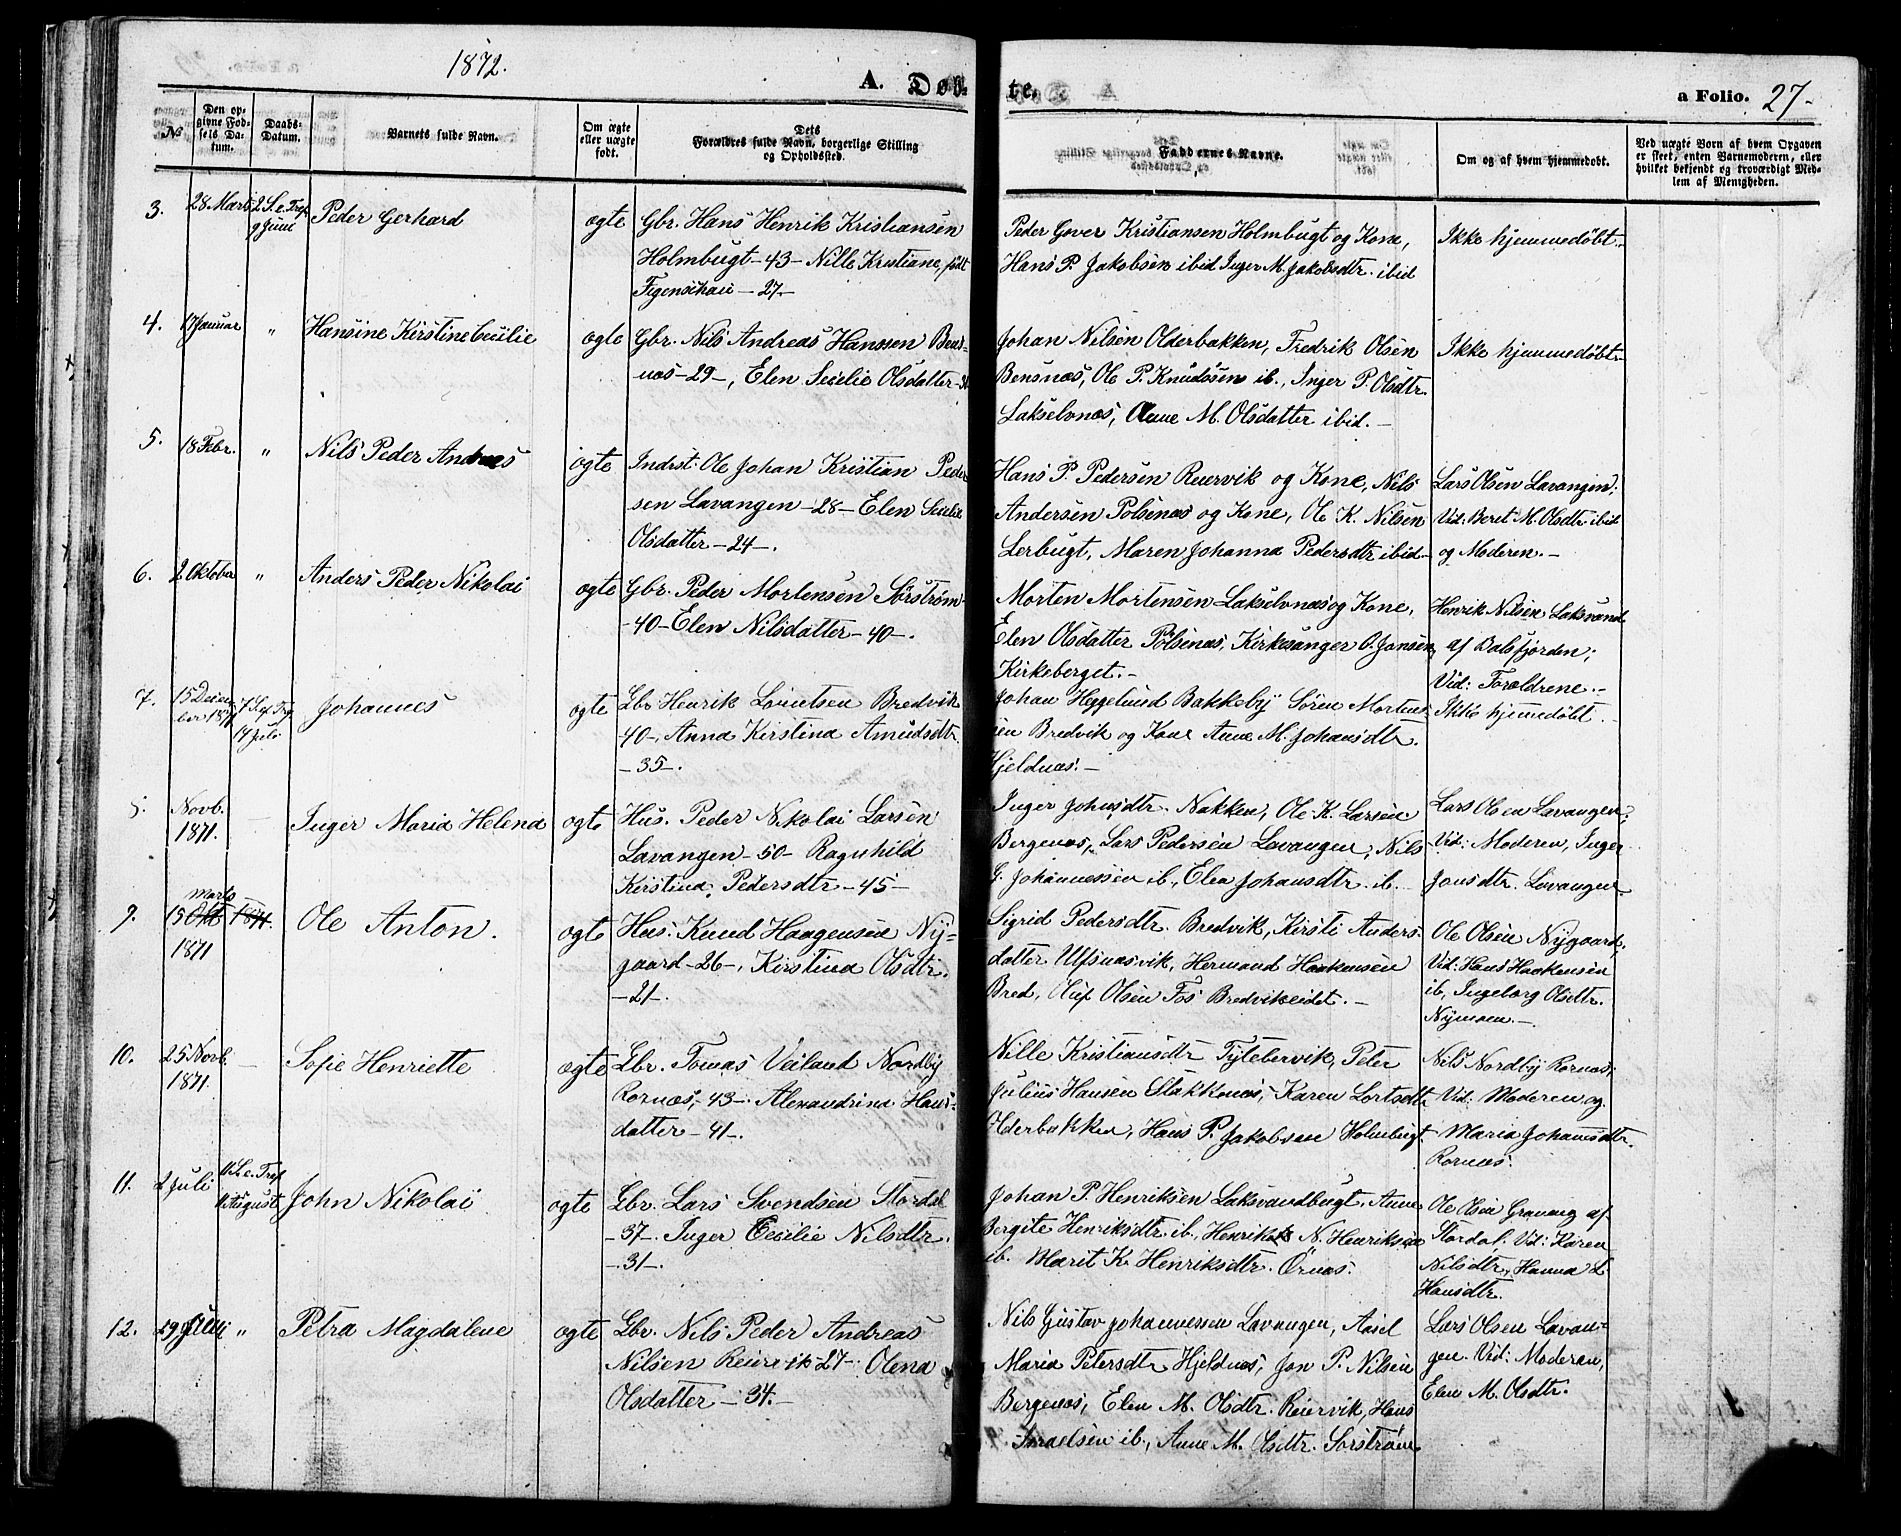 1872.
A. Døb-
te.
a Folio. 27.
No
Den op-
givne Fød-
sels Da-
tum.
Daabs-
Datum.
Barnets fulde Navn.
Om ægte
eller uægte
født.
Dets
Forældres fulde Navn, borgerlige Stilling
og Opholdssted.
Faddernes Navne.
Om og af hvem hjemmedøbt.
Ved uægte Børn af hvem Opgaven
er skeet, enten Barnemoderen, eller
hvilket bekjendt og troværdigt Med-
lem af Menigheden.
3. 28 Marts 2 S. e. Tref. 9 Juni Peder Gerhard ægte Gbr. Hans Henrik Kristiansen
Holmbugt - 43 - Nille Kristiane, født
Figenschau - 27 -
Peder Gover Kristiansen Holmbugt og Kone,
Hans P. Jakobsen ibid Inger M. Jakobsdtr. ibid
Ikke hjemmedøbt.
4. 17 Januar " Hansine Kirstine Cecilie ægte Gbr. Nils Andreas Hanssen Bens-
næs - 29 -, Elen Secilie Olsdatter - 31
Johan Nilsen Olderbakken, Fredrik Olsen
Bensnæs, Ole P. Knudsen ib., Inger P. Olsdtr.
Lakselvnæs, Anne M. Olsdatter ibid. -
Ikke hjemmedøbt
5. 18 Febr. " Nils Peder Andreas ægte Indrst. Ole Johan Kristian Peder
sen Lavangen - 28 - Elen Secilie
Olsdatter - 24 -.
Hans P. Pedersen Reiervik og Kone, Nils
Andersen Polsenæs og Kone, Ole K. Nilsen
Lerbugt, Maren Johanna Pedersdtr ibid -
Lars Olsen Lavangen;
Vid: Beret M. Olsdtr ibid
og Moderen. -
6. 2 Oktober " Anders Peder Nikolai ægte Gbr. Peder Mortensen Sørstrøm -
- 40 - Elen Nilsdatter - 40 -.
Morten Mortensen Lakselvnæs og Kone,
Elen Olsdatter Polsenæs, Kirkesanger O. Jansen,
Kirkeberget. -
Henrik Nilsen Laksvand
af Balsfjorden;
Vid: Forældrene. -
7. 15 Decem
ber 1871 7 S. e. Tref. 14 Juli Johannes ægte Gbr Henrik Lorintsen Bredvik
- 40 -, Anna Kirstina Amundsdtr.
- 35 -.
Johan Heggelund Bakkeby Søren Morten-
sen Bredvik og Kone Anne M. Johansdtr.
Hjeldnæs. -
Ikke hjemmedøbt.
8. Novb.
1871. - Inger Maria Helena ægte Hus. Peder Nikolai Larsen
Lavangen - 50 - Ragnhild
Kirstina Pedersdtr - 45 -
Inger Johnsdtr. Nakken, Ole K. Larsen
Bergenæs, Lars Pedersen Lavangen, Nils
G. Johannessen ib., Elen Johansdtr. ib.
Lars Olsen Lavangen;
Vid: Moderen, Inger
Jonsdtr. Lavangen
9. Marts
15 Okt 1871.
1871 Ole Anton. ægte Hus. Knud Haagensen Ny-
gaard - 26 -, Kirstina Olsdtr.
- 21 -.
Sigrid Pedersdtr. Bredvik, Kirsti Anders-
datter Ulfsnæsvik, Hermand Haakensen
Bred, Oluf Olsen Fos Bredvikeidet. -
Ole Olsen Nygaard;
Vid: Hans Haakensen
ib, Ingeborg Olsdtr.
Nymoen. -
10. 25 Novb.
1871. - Sofie Henriette ægte Gbr. Tomas Veiland Nordby
Rornæs, - 43 -. Alexandrina Hans-
datter - 41 -.
Nille Kristiansdtr Tyttebervik, Peter
Julius Hansen Stakkenæs, Karen Lortsdtr
Olderbakken, Hans P. Jakobsen Holmbugt.
Nils Nordby Rornæs;
Vid: Moderen og
Maria Johannsdtr.
Rornæs.
11. 2 Juli 11 S. e. Tref
11 August John Nikolai ægte Gbr. Lars Svendsen Stordal
- 37 - Inger Cecilie Nilsdtr.
- 31 -.
Johan P. Henriksen Laksvandbugt, Anne
Bergite Henriksdtr. ib., Henrik N. Henriksen
ib. Marit K. Henriksdtr. Örnæs.
Ole Olsen Gravang af
Stordal. Vid: Karen
Nilsdtr, Hanna L
Hansdtr.
12. 29 Juli " Petra Magdalene ægte Gbr. Nils Peder Andreas
Nilsen Reiervik - 27 - Olena
Olsdatter - 34. -
Nils Gustav Johannessen Lavangen, Aasel
Maria Petersdtr Hjeldnæs, Jon P. Nilsen
Bergenæs, Elen M. Olsdtr. Reiervik, Hans
Israelsen ib., Anne M. Olsdtr. Sørstrøm
Lars Olsen Lavan-
gen. Vid: Moderen,
Elen M. Olsdtr.